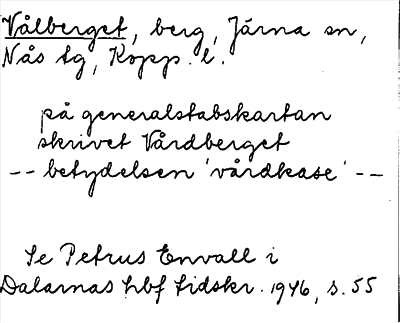 Vålberget, berg, Järna sn,
Nås tg, Kopp. l.
på generalstabskartan
skrivet Vårdberget
-- betydelsen 'vårdkase' --
Se Petrus Envall i
Dalarnas hbf tidskr. 1946, s. 55